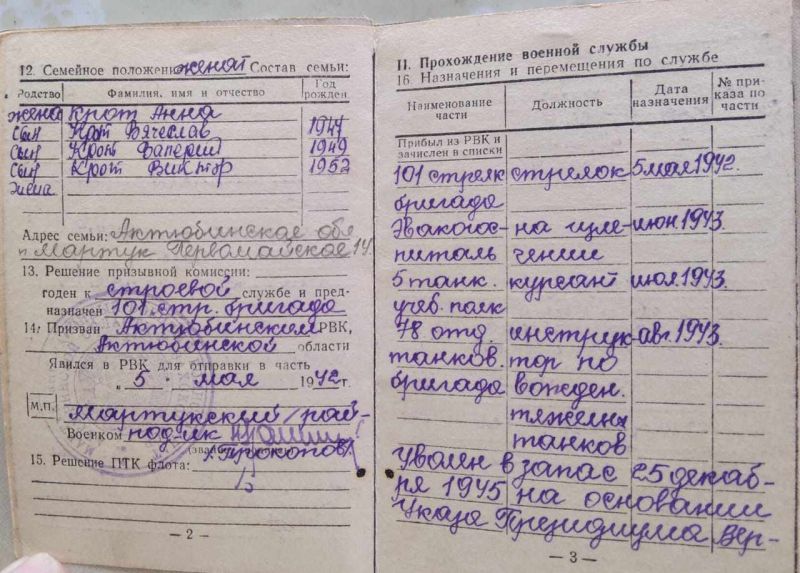 12. Семейное положение женат Состав семьи:
Родство Фамилия, имя и отчество Год рожден.
жена Крот Анна
сын Крот Вячеслав 1947
сын Крот Валерий 1949
сын Крот Виктор 1952
жена
Адрес семьи: Актюбинское обл
п Мартук Первомайское 14
13. Решение призывной комиссии:
годен к строевой службе и пред-
назначен 101 стр. бригада
14. Призван Актюбинским РВК,
Актюбинской области
Явился в РВК для отправки в часть
„ 5 " мая 1942 г.
М.П. Мартукский рай-
Военком под-к
Прокопов
15. Решение ПТК флота:
— 2 —
II. Прохождение военной службы
16. Назначения и перемещения по службе
Наименование части Должность Дата назначения № при-каза по части
Прибыл из РВК и
зачислен в списки
101 стрелк стрелок 5 мая 1942.
бригада
Эвакогос- на изле- июн 1943.
питаль чении
5 танк. курсант июл 1943.
учеб. полк
78 отд. инструк- авг. 1943.
танков. тор по
бригада вожден.
тяжелых
танков
Уволен в запас 25 декаб-
ря 1945 на основании
Указа Президиума Вер-
— 3 —